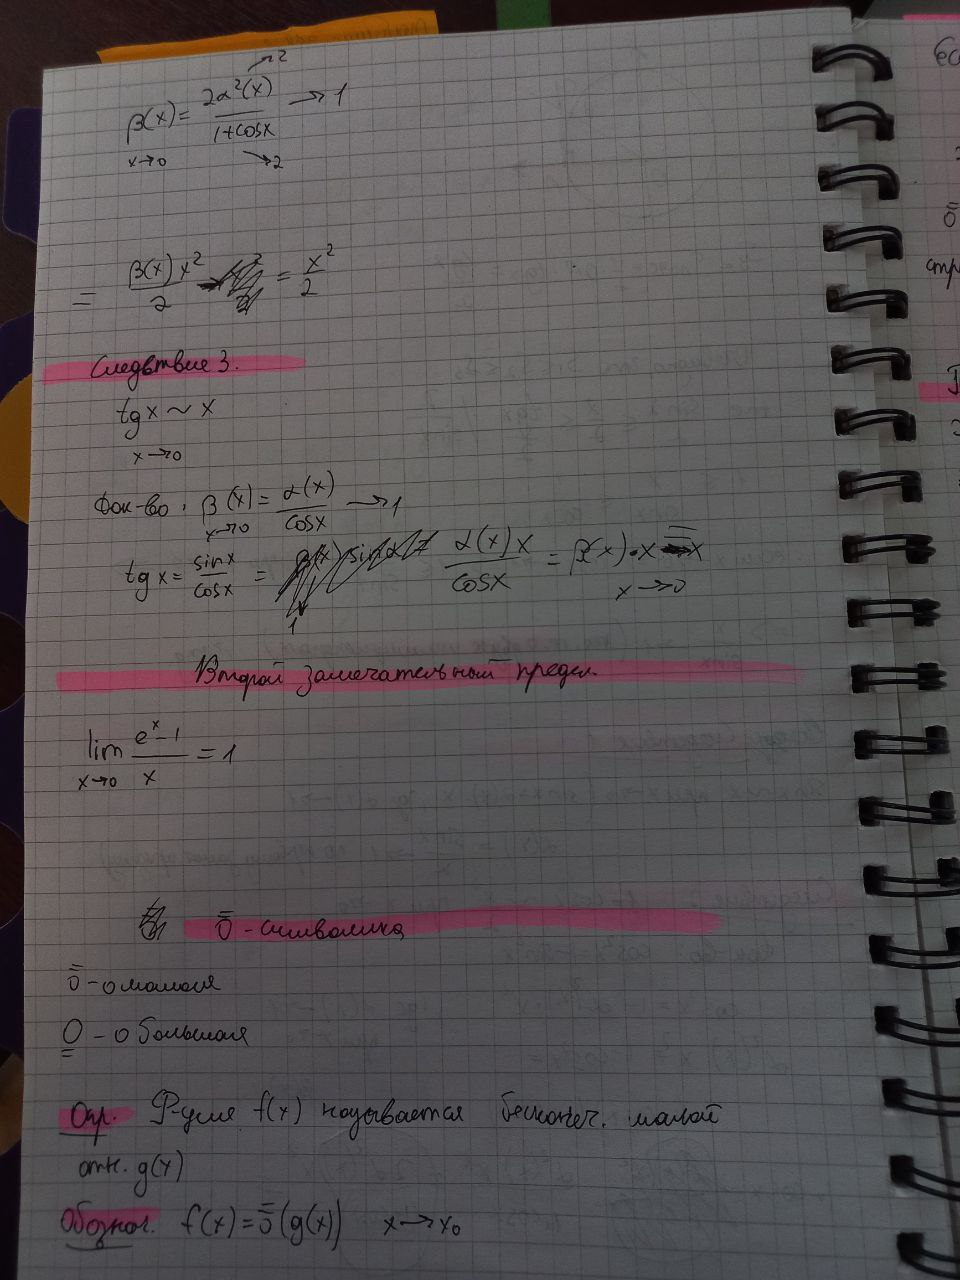 →2
β(x) = 2α²(x) / 1+cosx → 1
x→0 →2
= β(x) x² / 2 = x² / 2
Следствие 3.
tg x ~ x
x→0
Док-во. β(x) = α(x) / cosx → 1
x→0
tg x = sinx / cosx = α(x) x / cosx = β(x)·x = x
1 x→0
Второй замечательный предел.
lim eˣ-1 / x = 1
x→0
ō̄ - символика
ō̄ - о малая
O̳ - о большая
Опр. Ф-ция f(x) называется бесконеч. малой
отн. g(x)
Обознач. f(x) = ō̄(g(x)) x→x₀
Ес
ō
стр